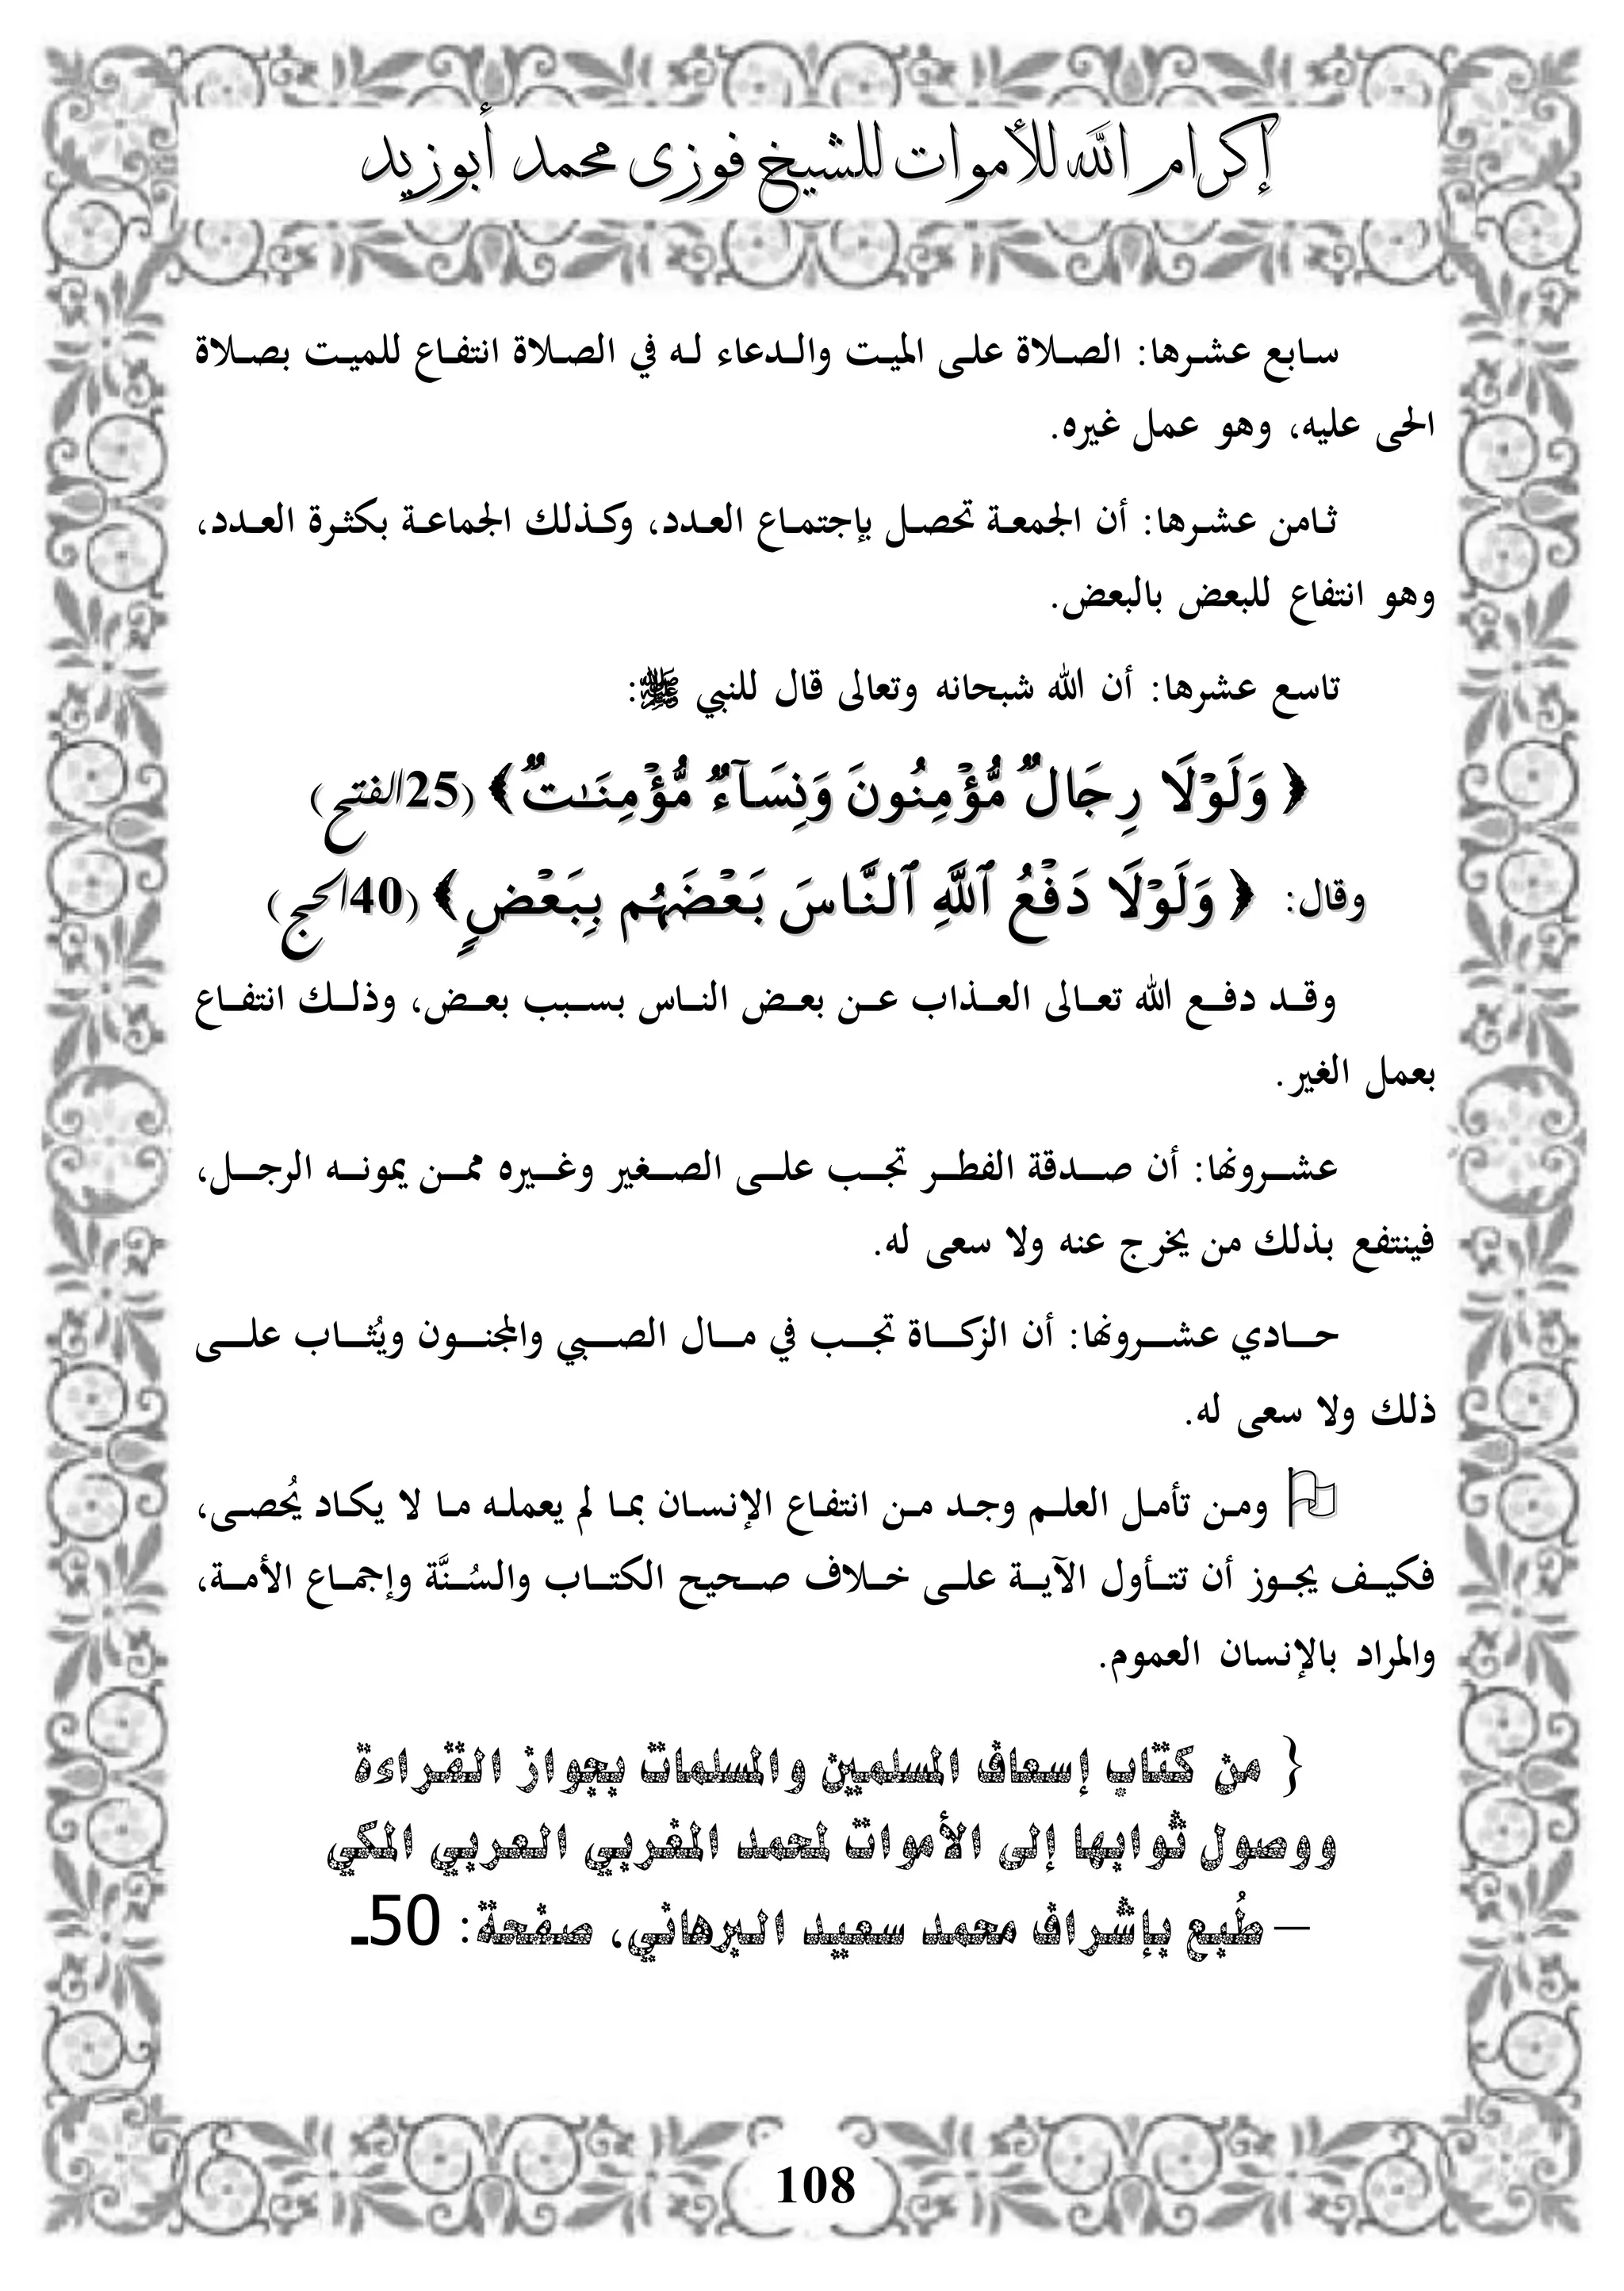 إكرام الله للأموات للشيخ فوزى محمد أبوزيد
سابع عشرها: الصلاة على الميت والدعاء له في الصلاة انتفاع للميت بصلاة
الحى عليه، وهو عمل غيره.
ثامن عشرها: أن الجمعة تحصل بإجتماع العدد، وكذلك الجماعة بكثرة العدد،
وهو انتفاع للبعض بالبعض.
تاسع عشرها: أن الله شبحانه وتعالى قال للنبي ﷺ:
﴿ وَلَوْلَا رِجَالٌ مُّؤْمِنُونَ وَنِسَآءٌ مُّؤْمِنَـٰتٌ ﴾ (25الفتح)
وقال: ﴿ وَلَوْلَا دَفْعُ ٱللَّهِ ٱلنَّاسَ بَعْضَهُم بِبَعْضٍ ﴾ (40الحج)
وقد دفع الله تعالى العذاب عن بعض الناس بسبب بعض، وذلك انتفاع
بعمل الغير.
عشرونها: أن صدقة الفطر تجب على الصغير وغيره ممن يمونه الرجل،
فينتفع بذلك من يخرج عنه ولا سعى له.
حادي عشرونها: أن الزكاة تجب في مال الصبي والمجنون ويُثاب على
ذلك ولا سعى له.
ومن تأمل العلم وجد من انتفاع الإنسان بما لم يعمله ما لا يكاد يُحصى،
فكيف يجوز أن تتأول الآية على خلاف صحيح الكتاب والسُنَّة وإجماع الأمة،
والمراد بالإنسان العموم.
{ من كتاب إسعاف المسلمين والمسلمات بجواز القراءة
ووصول ثوابها إلى الأموات لمحمد المغربي العربي المكي
– طُبع بإشراف محمد سعيد البرهاني، صفحة: 50ـ
108